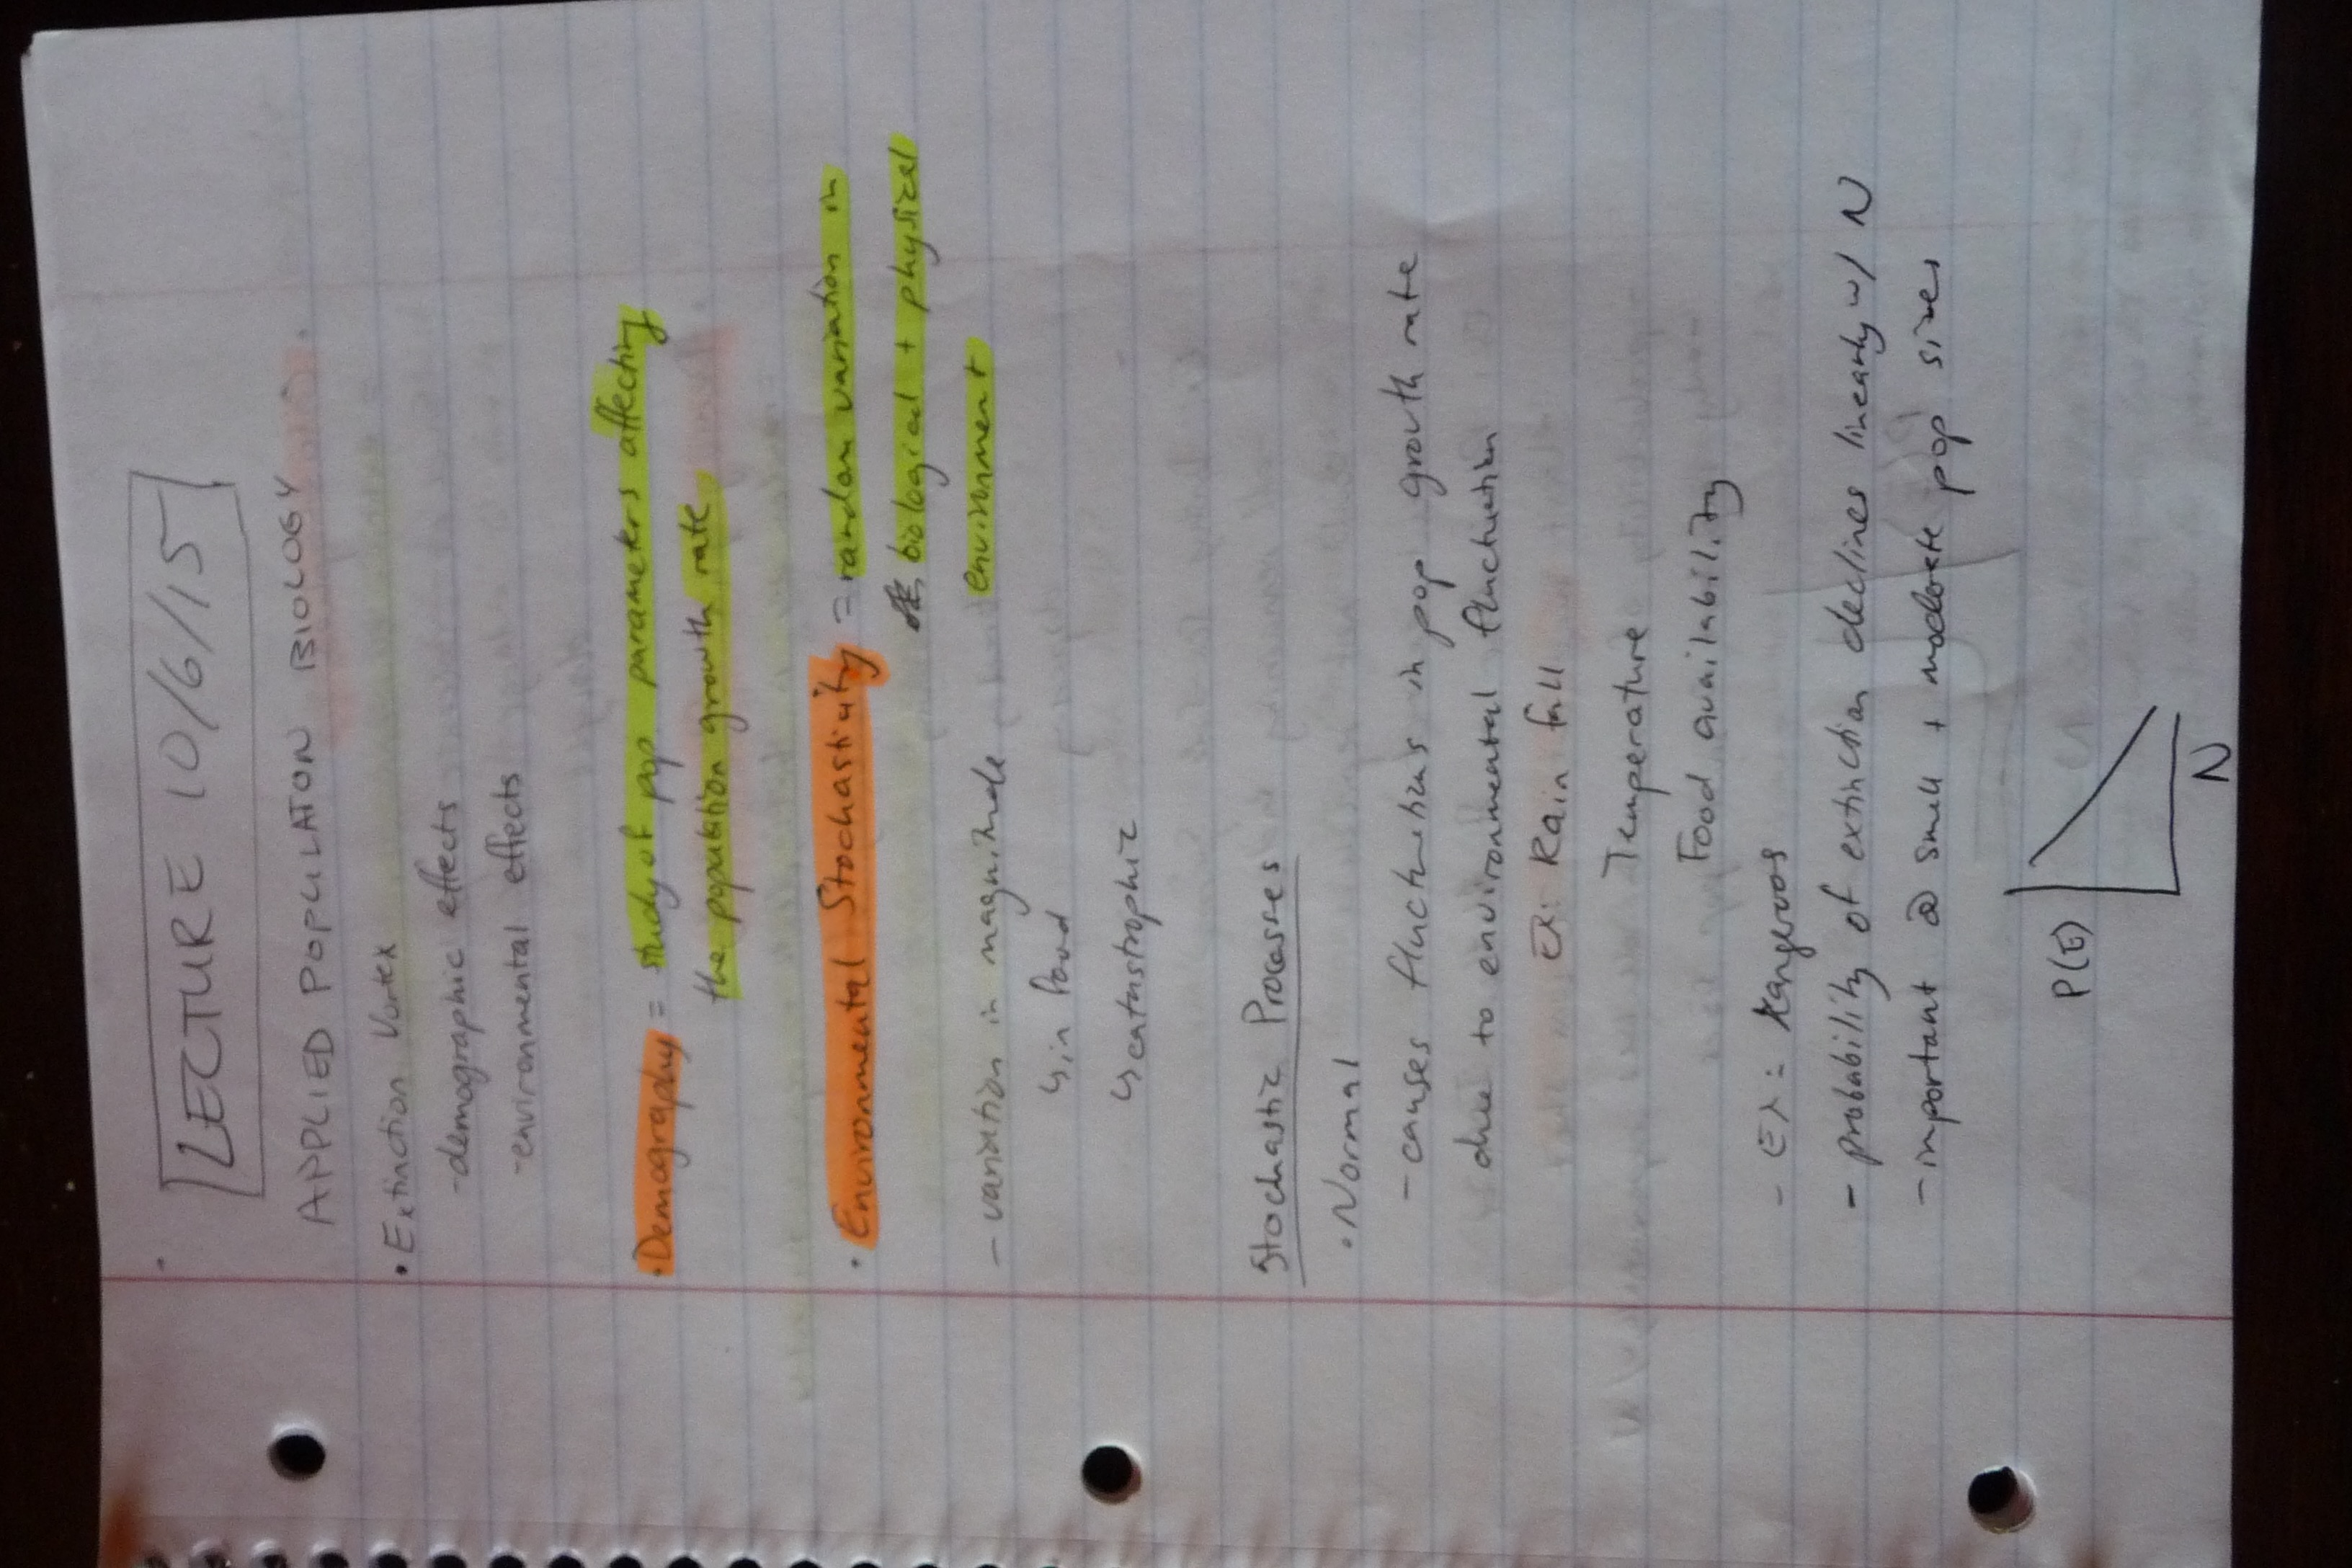 LECTURE 10/6/15
APPLIED POPULATON BIOLOGY
• Extinction Vortex
- demographic effects
- environmental effects
• Demography = study of pop parameters affecting
the population growth rate
• Environmental Stochasticity = random variation in
biological + physical
environment
- variation in magnitude
↳ in
↳ catastrophic
Stochastic Processes
• Normal
- causes fluctuations in pop growth rate
due to environmental fluctuation
EX: Rain fall
Temperature
Food availability
- EX: Kangeroos
- probability of extinction declines linearly w/ N
- important @ small + moderate pop sizes
P(E)
N